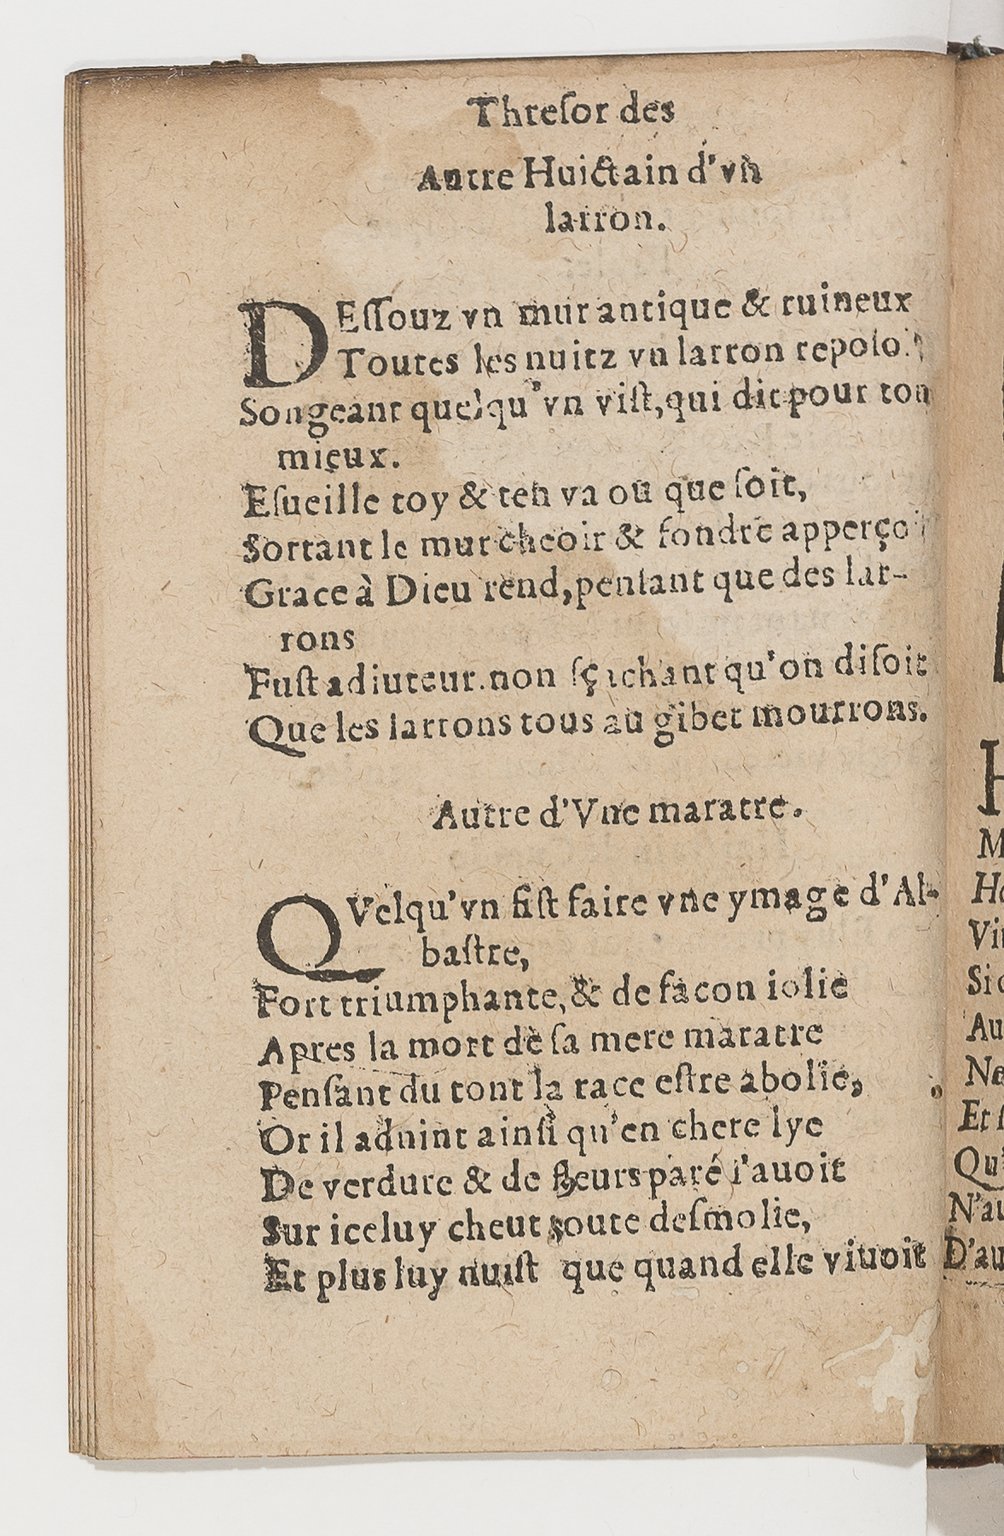 Thresor des
Autre Huictain d'vn
larron.
DEſſouz vn mur antique & ruineux
Toutes les nuitz vn larron repoſo
Songeant quelqu'vn viſt, qui dit pour ton
mieux.
Eſueille toy & ten va où que ſoit,
Sortant le mur cheoir & fondre apperço
Grace à Dieu rend, penſant que des lar-
rons
Fuſt adiuteur. non ſçachant qu'on diſoit
Que les larrons tous au gibet mourrons.
Autre d'Vne maratre.
QVelqu'vn fiſt faire vne ymage d'Al-
baſtre,
Fort triumphante, & de facon iolie
Apres la mort de ſa mere maratre
Penſant du tont la race eſtre abolie,
Or il aduint ainſi qu'en chere lye
De verdure & de fleurs paré l'auoit
Sur iceluy cheut toute deſmolie,
Et plus luy nuiſt que quand elle viuoit
H
M
Ho
Vi
Si
Au
Ne
Et
Qu'
N'au
D'au